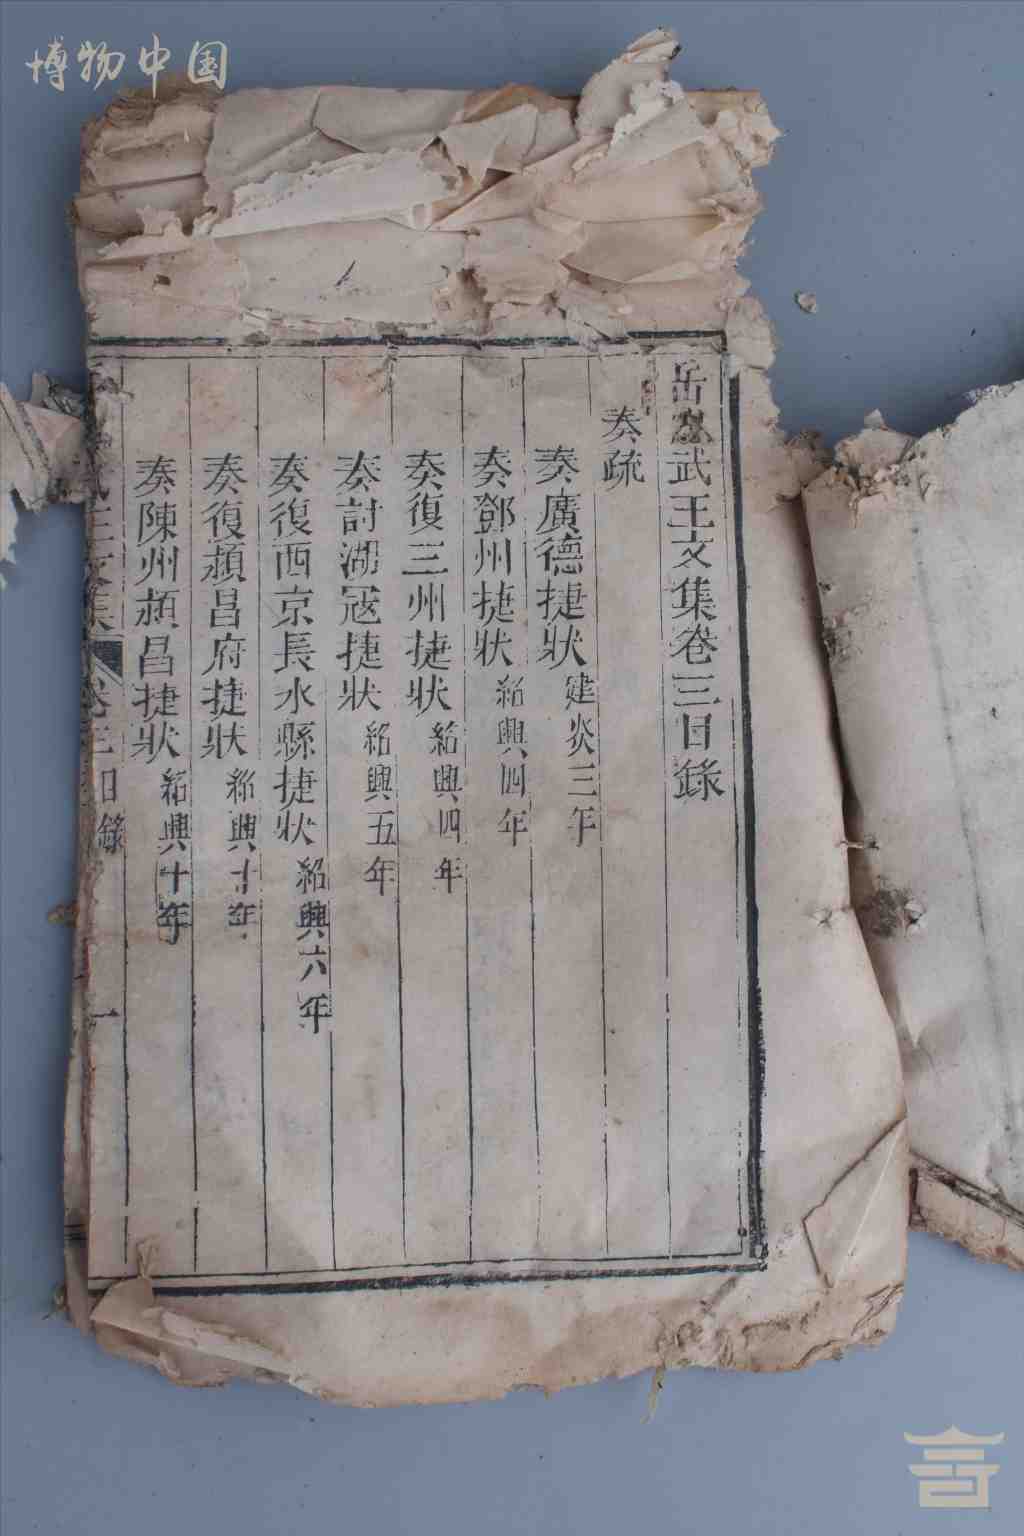 博物中国
岳忠武王文集卷三目錄
奏疏
奏廣德捷狀 建炎三年
奏鄧州捷狀 紹興四年
奏復三州捷狀 紹興四年
奏討湖冦捷狀 紹興五年
奏復西京長水縣捷狀 紹興六年
奏復潁昌府捷狀 紹興十年
奏陳州潁昌捷狀 紹興十年
武王文集 卷三目錄 一